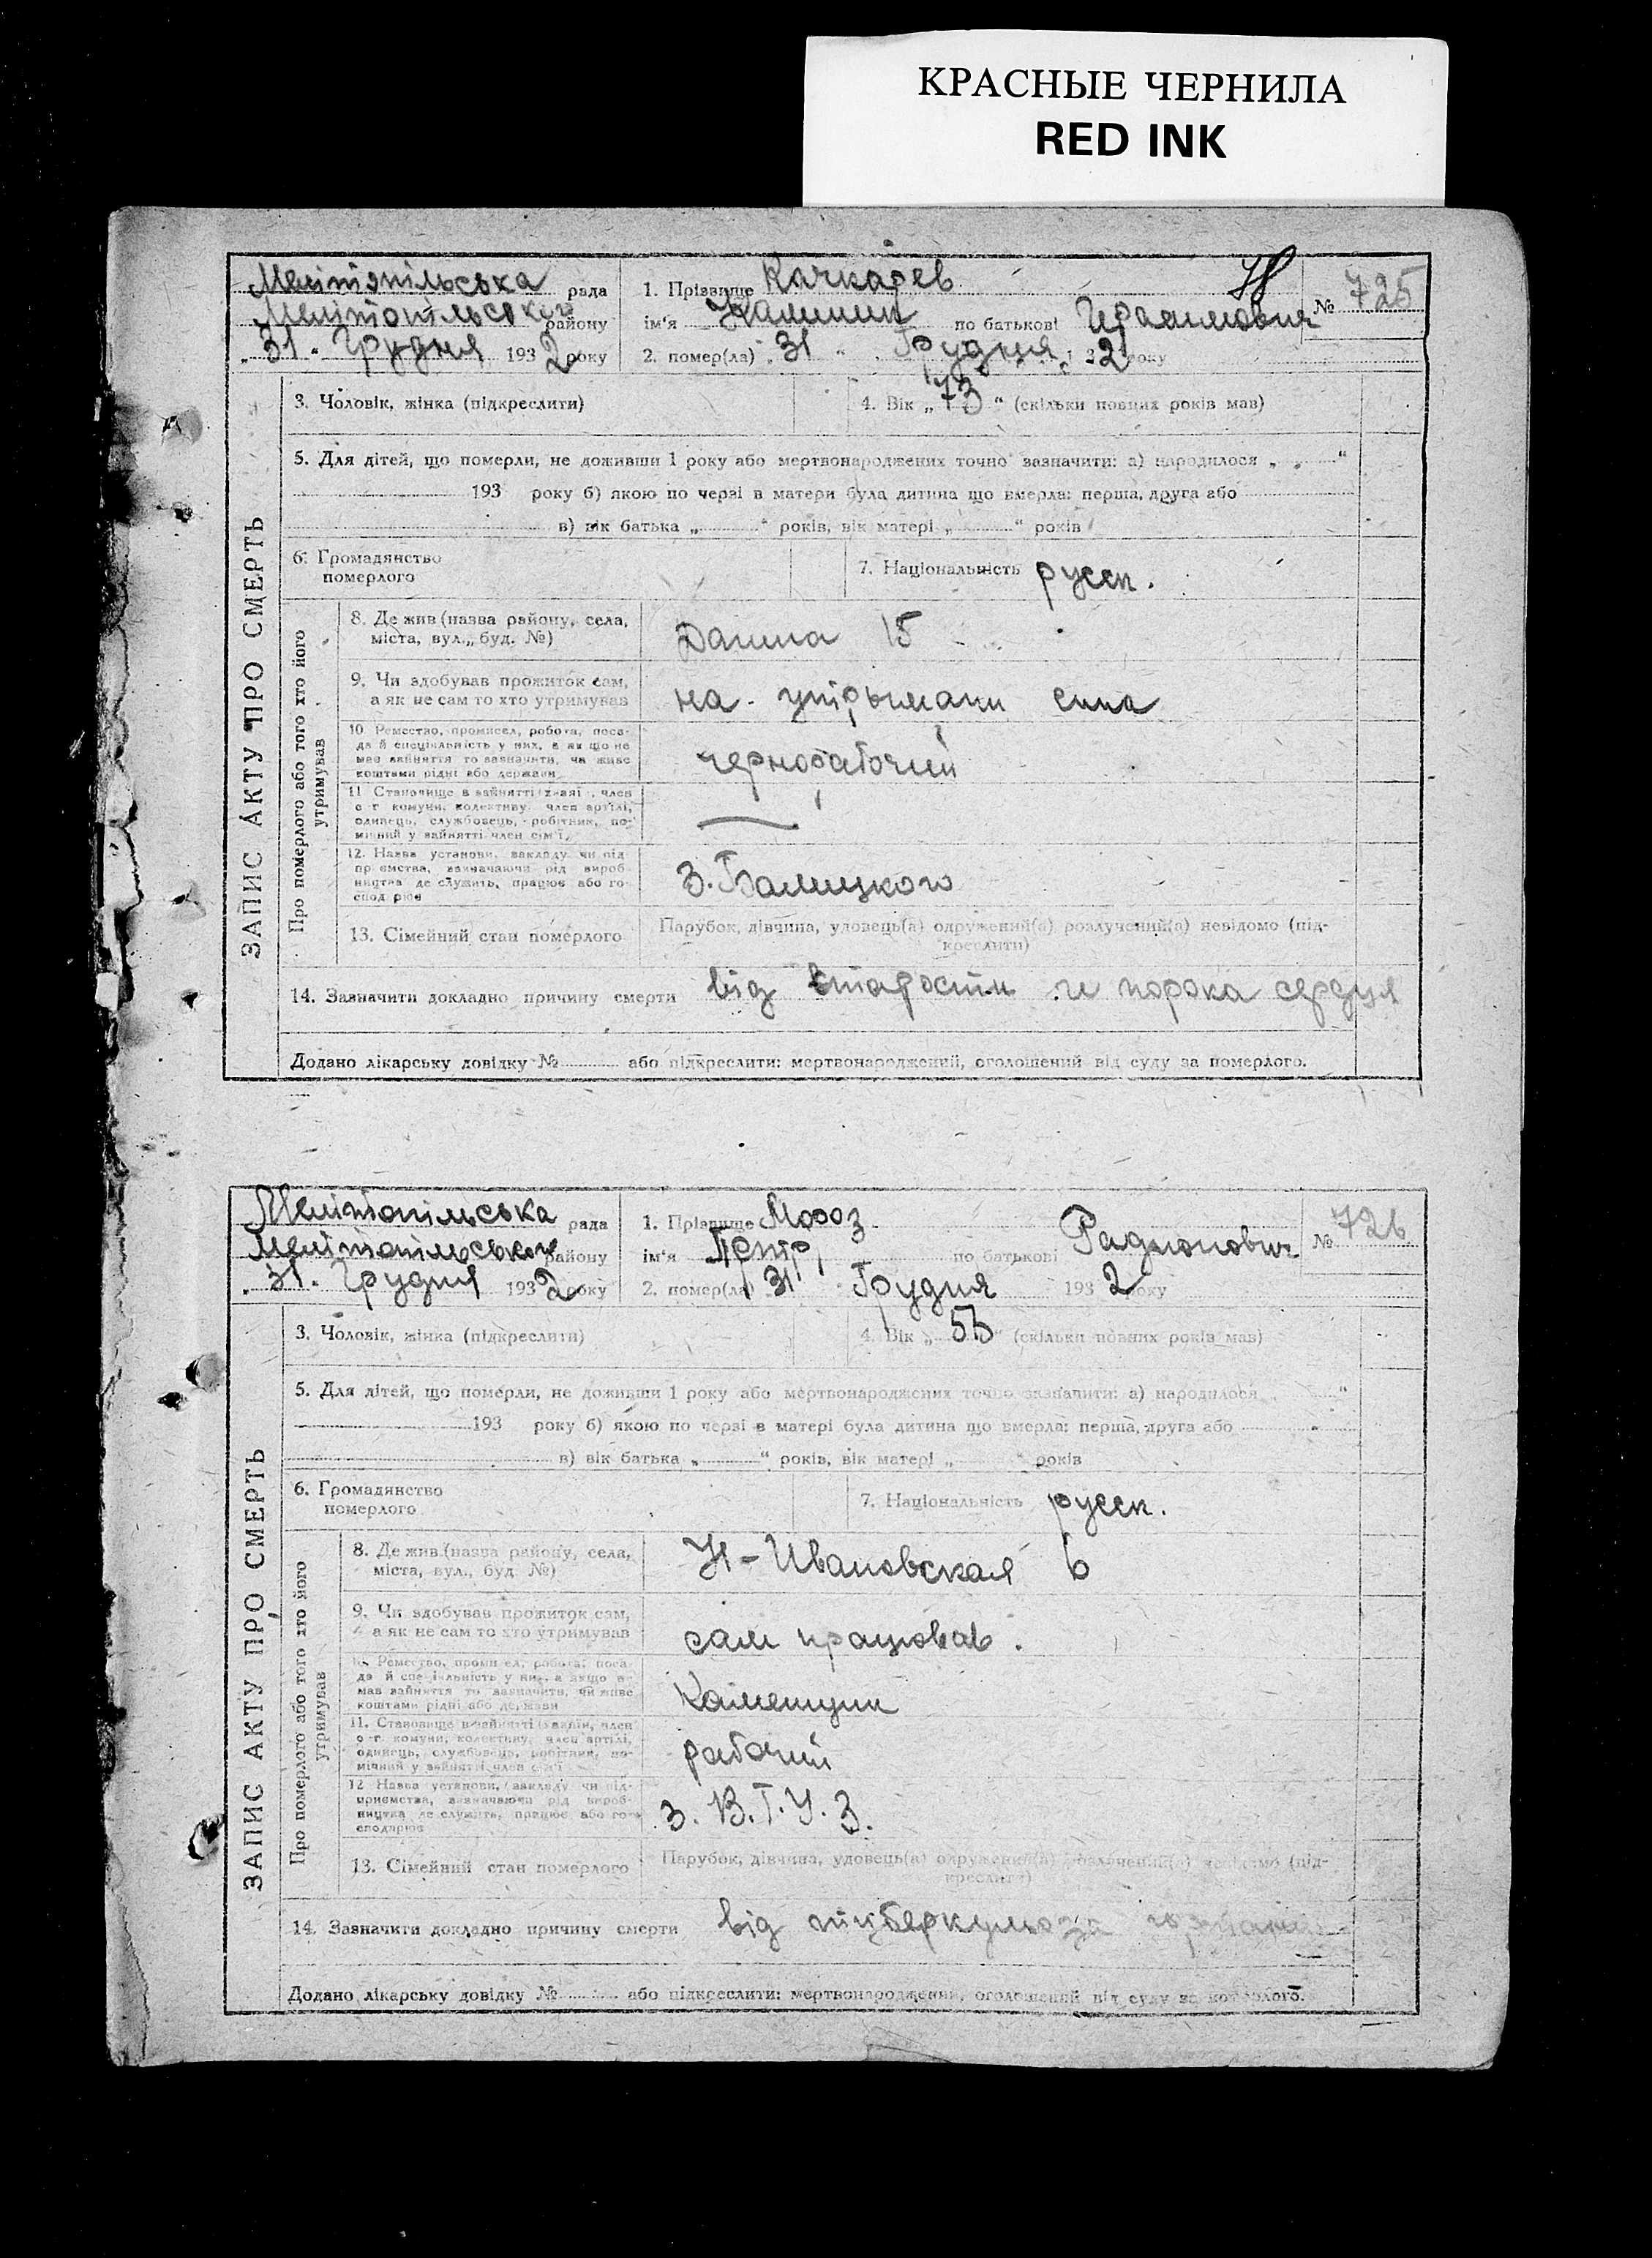 КРАСНЫЕ ЧЕРНИЛА
RED INK
Мелітопільська рада
Мелітопільського району
„ 31 “ Грудня 1932 року
1. Прізвище Качкарев
ім'я Калиник по батькові
2. помер(ла) „ 31 “ Грудня 32 року
№ 725
3. Чоловік, жінка (підкреслити)
4. Вік „ 73 “ (скільки повних років мав)
5. Для дітей, що померли, не доживши 1 року або мертвонароджених точно зазначити: а) народилося „ „ “
193 року б) якою по черзі в матери була дитина що вмерла: перша, друга або
в) вік батька „ “ років, вік матері „ “ років
6. Громадянство
померлого
7. Національність русск.
ЗАПИС АКТУ ПРО СМЕРТЬ
Про померлого або того хто його
утримував
8. Де жив (назва району, села,
міста, вул., буд. №)
15
9. Чи здобував прожиток сам,
а як не сам то хто утримував
на утрымани сина
10 Ремество, промисел, робота, поса-
да й спеціальність у них, а як що не
мав зайняття то зазначити, чи живе
коштами рідні або держави
чернорабочий
11 Становище в зайнятті член
с-г комуни, колективу, член артілі,
одинець, службовець, робітник, по-
мічний у зайнятті член сім'ї,
12. Назва установи, закладу чи під-
приємства, зазначаючи рід вироб-
ництва де служить, працює або го-
сподарює
З. Балицкого
13. Сімейний стан померлого
Парубок, дівчина, удовець(а) одружений(а) розлучений(а) невідомо (під-
креслити)
14. Зазначити докладно причину смерти від старости и порока сердця
Додано лікарську довідку № або підкреслити: мертвонароджений, оголошений від суду за померлого.
Мелітопільська рада
Мелітопільського району
„ 31. Грудня 1932 року
1. Прізвище Мороз
ім'я Петр по батькові Радионович
2. помер(ла) 31 Грудня 1932 року
№ 726
3. Чоловік, жінка (підкреслити)
4. Вік „ 55 “ (скільки повних років мав)
5. Для дітей, що померли, не доживши 1 року або мертвонароджених точно зазначити: а) народилося „ “
193 року б) якою по черзі в матері була дитина що вмерла: перша, друга або
в) вік батька „ “ років, вік матері „ “ років
6. Громадянство
померлого
7. Національність русск.
ЗАПИС АКТУ ПРО СМЕРТЬ
Про померлого або того хто його
утримував
8. Де жив (назва району, села,
міста, вул., буд. №)
Н-Ивановская 6
9. Чи здобував прожиток сам,
а як не сам то хто утримував
сам працював.
10. Ремество, промисел, робота, поса-
да й спеціальність у них, а якщо не
мав зайняття то зазначити, чи живе
коштами рідні або держави
Каменщик
11. Становище в зайнятті член
с-г комуни, колективу, член артілі,
одинець, службовець, робітник, по-
мічний у зайнятті член сім'ї
рабочий
12 Назва установи, закладу чи під-
приємства, зазначаючи рід вироб-
ництва де служить, працює або го-
сподарює
з. В.Т.У.З.
13. Сімейний стан померлого
Парубок, дівчина, удовець(а) одружений(а) розлучений(а) невідомо (під-
креслити)
14. Зазначити докладно причину смерти від туберкульоза
Додано лікарську довідку № або підкреслити: мертвонароджений, оголошений від суду за померлого.